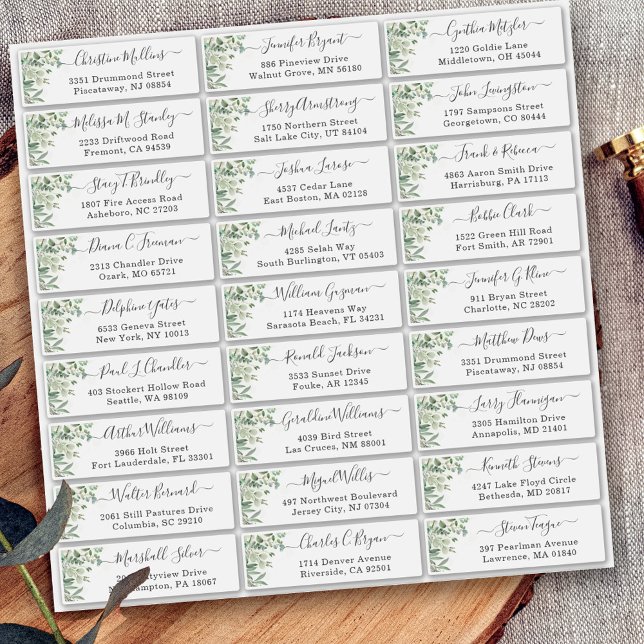 Christine Mullins
3351 Drummond Street
Piscataway, NJ 08854
Jennifer Bryant
886 Pineview Drive
Walnut Grove, MN 56180
Cynthia Metzler
1220 Goldie Lane
Middletown, OH 45044
Melissa M. Stanley
2233 Driftwood Road
Fremont, CA 94539
Sherry Armstrong
1750 Northern Street
Salt Lake City, UT 84104
John Livingston
1797 Sampsons Street
Georgetown, CO 80444
Stacy T. Brindley
1807 Fire Access Road
Asheboro, NC 27203
Joshua Larose
4537 Cedar Lane
East Boston, MA 02128
Frank & Rebecca
4863 Aaron Smith Drive
Harrisburg, PA 17113
Diana C. Freeman
2313 Chandler Drive
Ozark, MO 65721
Michael Lantz
4285 Selah Way
South Burlington, VT 05403
Bobbie Clark
1522 Green Hill Road
Fort Smith, AR 72901
Delphine Yates
6533 Geneva Street
New York, NY 10013
William Guzman
1174 Heavens Way
Sarasota Beach, FL 34231
Jennifer G. Kline
911 Bryan Street
Charlotte, NC 28202
Paul J. Chandler
403 Stockert Hollow Road
Seattle, WA 98109
Ronald Jackson
3533 Sunset Drive
Fouke, AR 12345
Matthew Dews
3351 Drummond Street
Piscataway, NJ 08854
Arthur Williams
3966 Holt Street
Fort Lauderdale, FL 33301
Geraldine Williams
4039 Bird Street
Las Cruces, NM 88001
Larry Flannigan
3305 Hamilton Drive
Annapolis, MD 21401
Walter Bernard
2061 Still Pastures Drive
Columbia, SC 29210
Miguel Willis
497 Northwest Boulevard
Jersey City, NJ 07304
Kenneth Stevens
4247 Lake Floyd Circle
Bethesda, MD 20817
Marshall Silver
Drive
PA 18067
Charles C. Bryan
1714 Denver Avenue
Riverside, CA 92501
Steven Teague
397 Pearlman Avenue
Lawrence, MA 01840